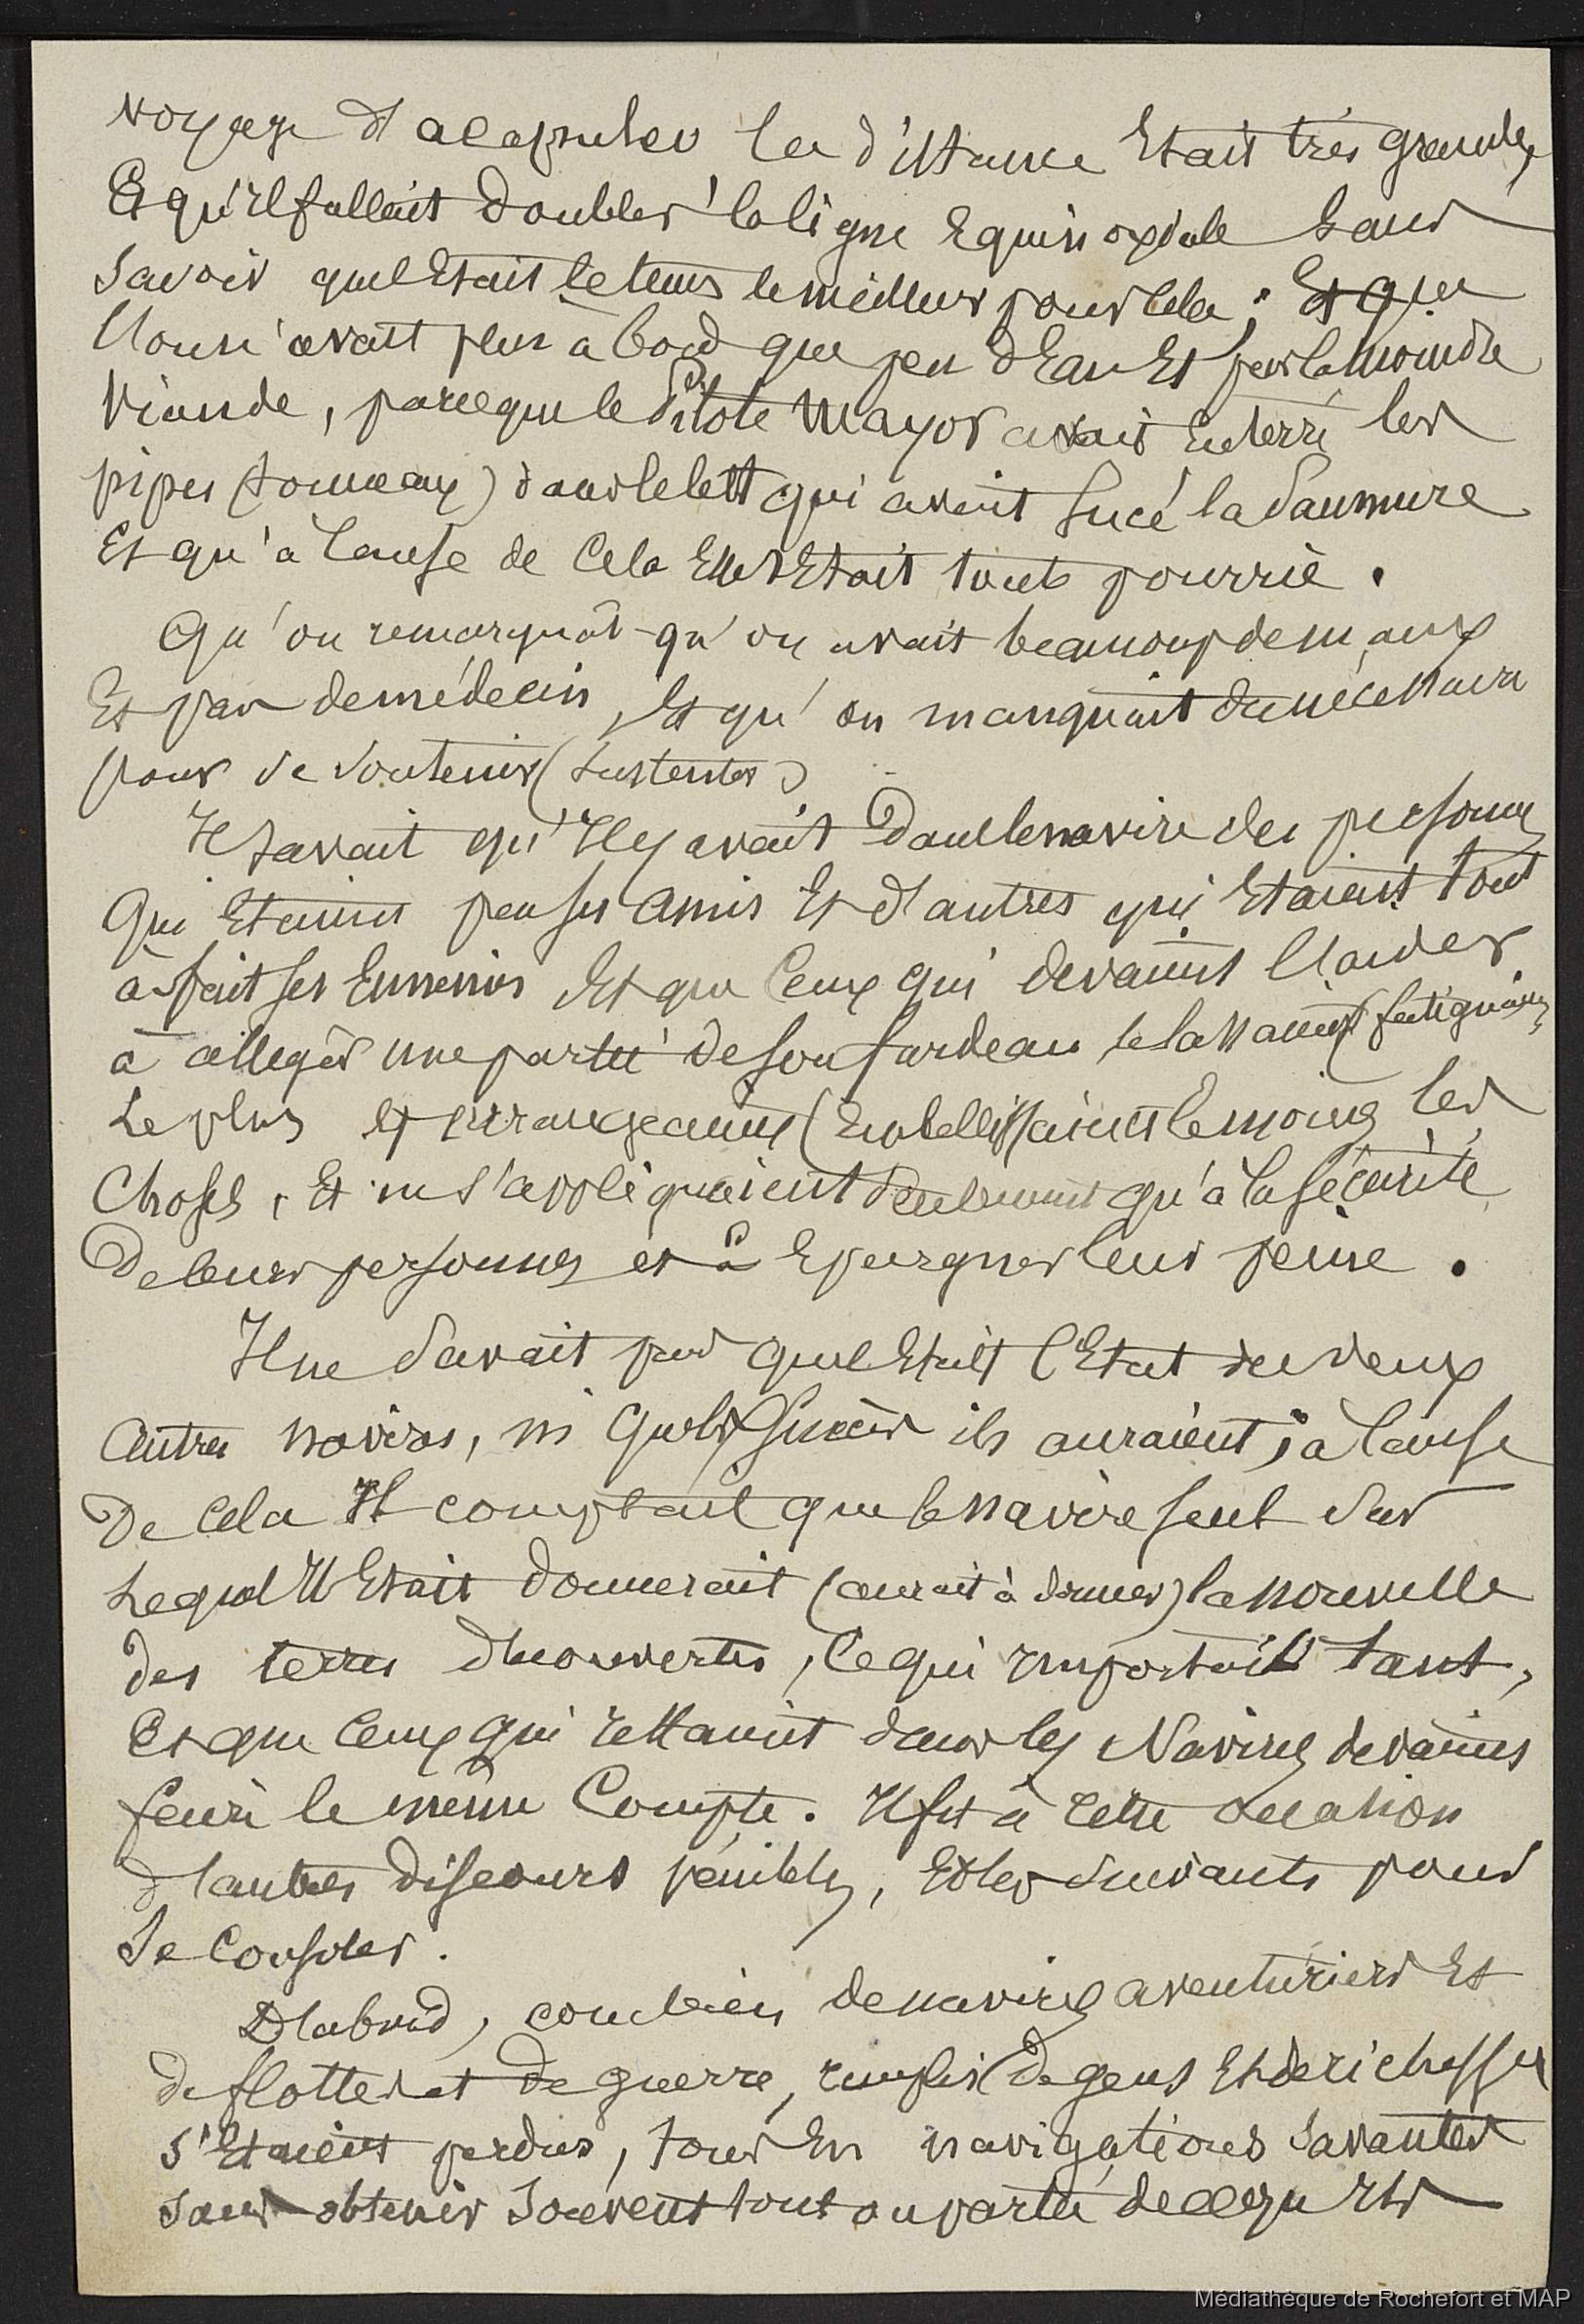 voyage d'acapulco la d'istance Etait très grande,
Et qu'il fallait doubler la ligne Equinoxiale sans
savoir quel Etait le tems le meilleur pour cela ; Et que
l'on n'avait plus à bord que peu d'Eau Et pas la moindre
viande, parceque le Pilote Mayor avait Enterré les
pipes (tonneaux) dans le lest qui avait sucé la saumure
Et qu'à cause de cela Elle Etait toute pourrie .
Qu'on remarquât qu'on avait beaucoup de maux
Et pas de médecin, Et qu'on manquait du nécessaire
pour se soutenir (sustenter)
Il savait qu'Il y avait dans le navire des personnes
Qui Etaient peu ses amis Et d'autres qui Etaient tout
à fait ses Ennemis Et que ceux qui devaient l'aider
à alleger une partie de son fardeau le lassaient (fatiguaient)
Le plus et arrangeaient (Embellissaient) le moins les
choses, Et ne s'appliquaient seulement qu'à la sécurité
De leurs personnes et à Epargner leur peine .
Il ne savait pas quel Etait l'Etat des deux
autres navires, ni quels succès ils auraient, à cause
De cela Il comptait que le navire seul sur
Lequel Il Etait donnerait (aurait à donner) la nouvelle
des terres découvertes, ce qui importait tant,
Et que ceux qui restaient dans les Navires devaient
faire le même compte. Il fit à cette occasion
d'autres discours pénibles, Et les suivants pour
se consoler.
D'abord, combien de navires aventuriers Et
de flottes et de guerre, remplis de gens Et de richesses
s'Etaient perdus, tous En navigations savantes
sans obtenir souvent tout ou partie de ce qu'Ils
Médiathèque de Rochefort et MAP